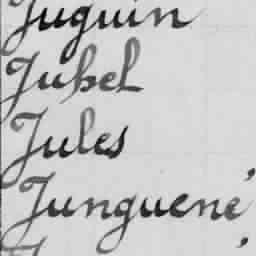 Juguin
Juhel
Jules
Junguené